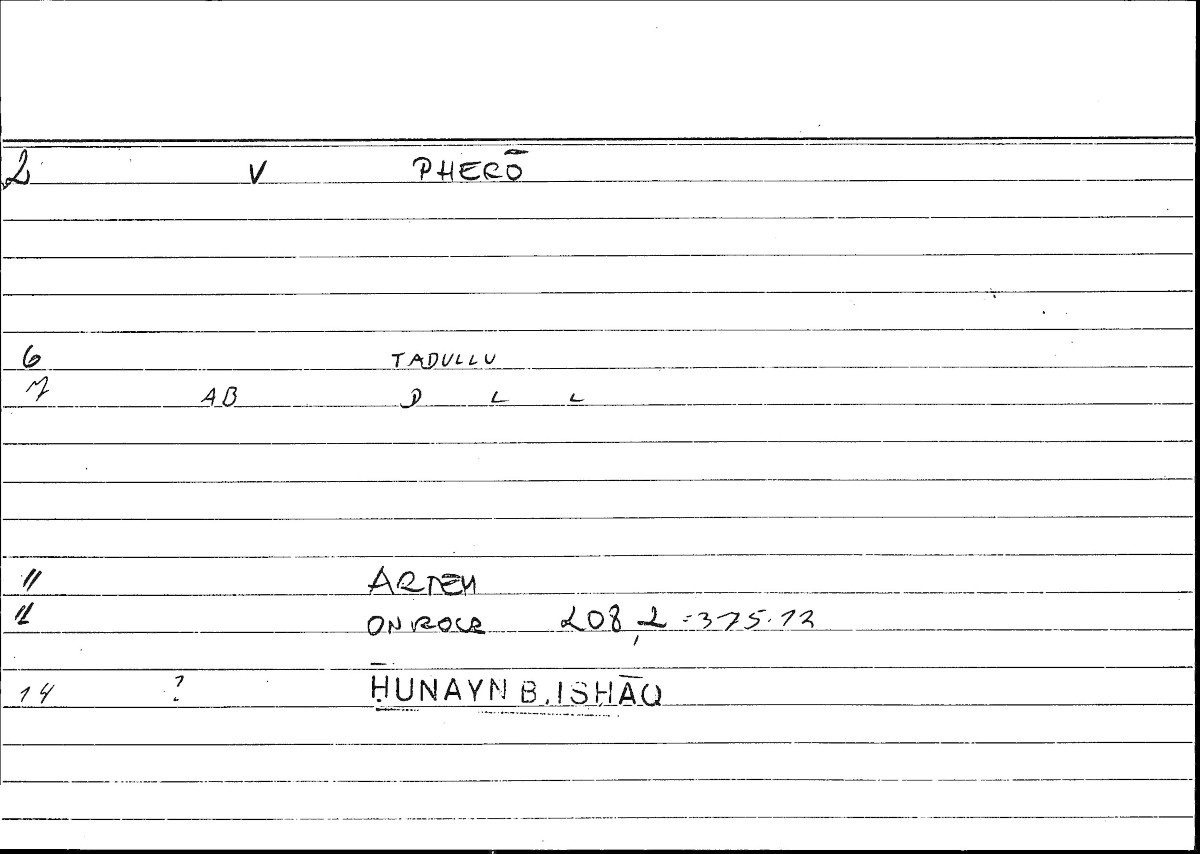 2 V PHERŌ
6 TADULLU
7 AB D L L
" ARTEM
" ONIROCR 208,2 = 375.12
14 ? ḤUNAYN B. ISḤĀQ